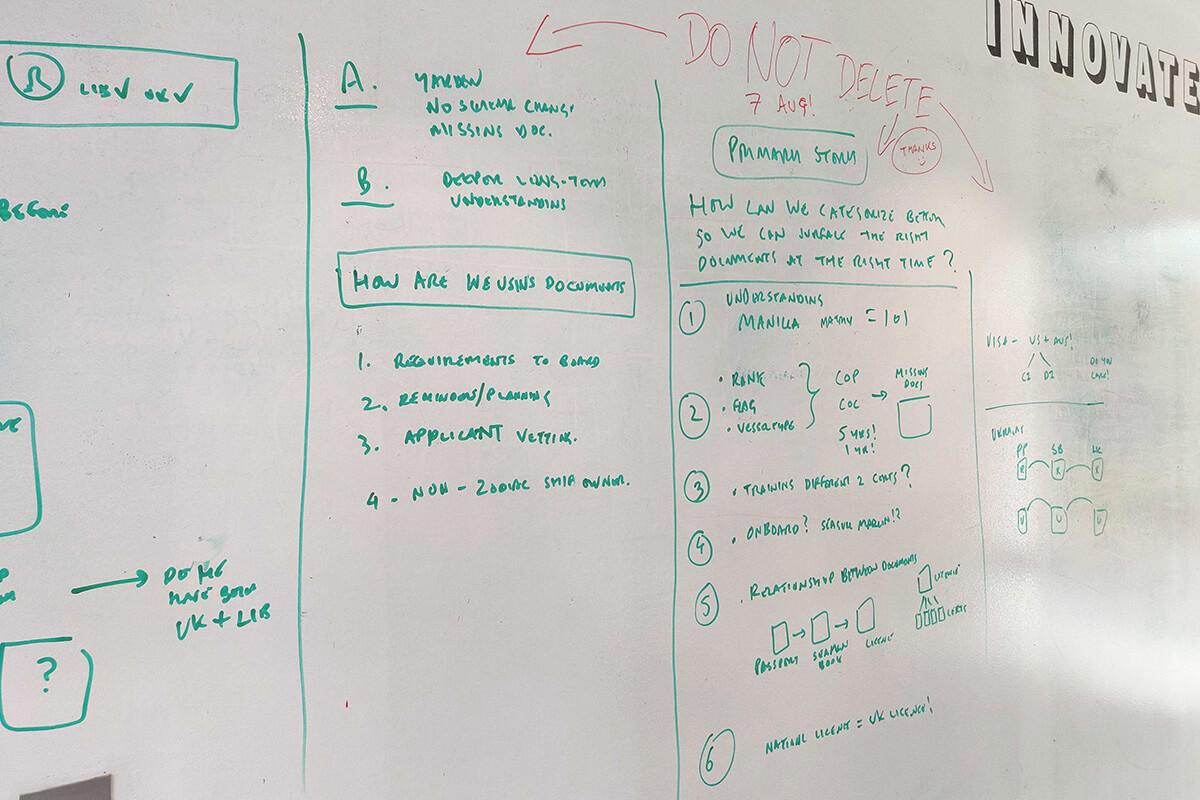 INNOVATE
DO NOT DELETE
7 AUG!
THANKS
LIB√ UK√
BEFORE
DO WE
HAVE BOTH
UK + LIB
?
A.
NO SCHEMA CHANGE
MISSING DOC.
B.
DEEPER LONG-TERM
UNDERSTANDING
HOW ARE WE USING DOCUMENTS
1. REQUIREMENTS TO BOARD
2. REMINDERS/PLANNING
3. APPLICANT VETTING.
4. NON-ZODIAC SHIP OWNER.
PRIMARY STORY
HOW CAN WE CATEGORIZE BETTER
SO WE CAN SURFACE THE RIGHT
DOCUMENTS AT THE RIGHT TIME?
1 UNDERSTANDING
MANILLA MATRIX = 101
2
• RANK
• FLAG
• VESSELTYPE
COP
COC
5 YRS!
1 YR!
MISSING
DOCS
3 • TRAINING DIFFERENT 2 CERTS?
4 • ONBOARD? SEAGULL MARLIN!?
5 • RELATIONSHIP BETWEEN DOCUMENTS
PASSPORT
SEAMAN
BOOK
LICENCE
CERTS
6 NATIONAL LICENCE = UK LICENCE!
VISA - US + AUS!
C1 D1
DO YOU
UKRAINE
PP SB
R R R
U U U